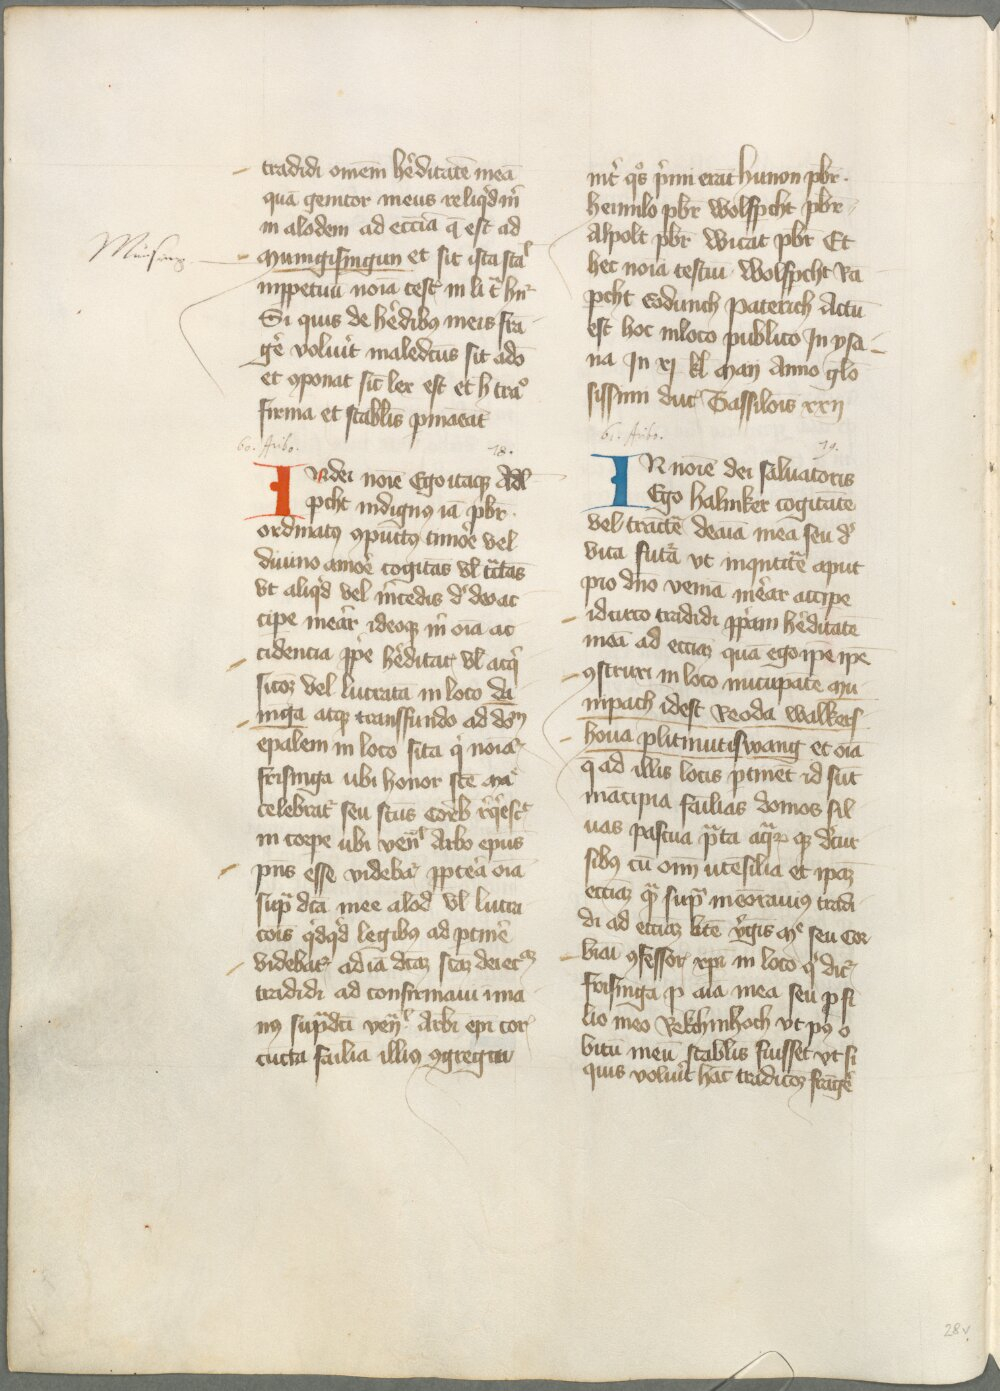 tradidi om̄em hēditatē meā
quā genitor meus reliq̇d m̄
in alodem ad eccīā q̄ est ad
Munigisingun et sit ista sta
inppetuū noīa test̄ in li
Si quis de hēdibꝰ meis frā
gē voluīt maledcūs sit adō
et ꝯponat sic̄ lex est et h̄ traº
firma et stabilis pmāeat
60. Aribo. 18.
In dei noīe Ego itaqꝫ Adl
pcht indignꝰ iā pbr̄
ordinatꝰ ꝯpūctꝰ timoē vel
diuino amoē cogitās vl̄ tc̄tās
vt aliq̇d vel m̄cedis dº deo ac
cipe meār̄ ideoqꝫ m̄ oīa ac
cidencia ꝓpē hēditat̄ vl̄ acq̄
sitoꝝ vel lucratā in loco da
ninga atqꝫ transfundo ad dom̄
epalem in loco sita q̇ noīat̄
frisinga ubi honor scē Ma
celebrat̄ seu scūs Corb̄ reqesc̄
in corpe ubi ven̄ Arbo epūs
pn̄s esse videbat̄ ꝓptēa oīa
sup̄ dcā mee alod̄ vl̄ lucra
cois q̇dq̇d legibꝰ ad ptinē
videbat̄ ad iā dcāꝫ scāꝫ dei eccāꝫ
tradidi ad confirmaui ma
nꝰ sup̄dci ven̄ Arbi epī cor̄
cūcta failia illiꝰ ꝯgregati
int̄ qºs pīmi erat Hunon pbr̄
Heimilo pbr̄ Wolfpcht pbr̄
Alpolt pbr̄ Wicat pbr̄ Et
hec noīa testiū Wolfpcht Ra
pcht Eodunch Paterich Actū
est hoc inloco publico In ysa
na In xj kl̄ Maij Anno glō
sissimi duc̄ Tassilois xxij
61. Aribo. 19.
IN noīe dei saluatoris
Ego Halmker cogitāte
vel tractē deaīa meā seu dº
vita futā vt inqntitē aput
pio dn̄o veniā mēar accipe
idcirco tradidi ꝓpam hēditatē
meā ad eccīaꝫ quā ego ipē ipē
ꝯstruxi in loco nūcupāte Mu
nipach idest Reoda Walkers
houa Plitmutiswang et oīa
q̄ ad illis locis ptinēt id sūt
mācipia failias domos sil
uas pascua p̄ta aqꝫ qꝫ dcur
sibꝰ cū om̄i utēsilia et ipaꝫ
eccīaꝫ q̄ sup̄ meōrauiꝰ tradi
di ad eccīaꝫ btē v̄gis Mº seu Cor
biai ꝯfessor̄ xpī in loco q̇ dic̄
frisinga p aīa mea seu p fi
lio meo Rekchinhoch vt pꝰ o
bitū meū stabilis fuisset vt si
quis voluīt hac tradicōꝫ frāgē
28v